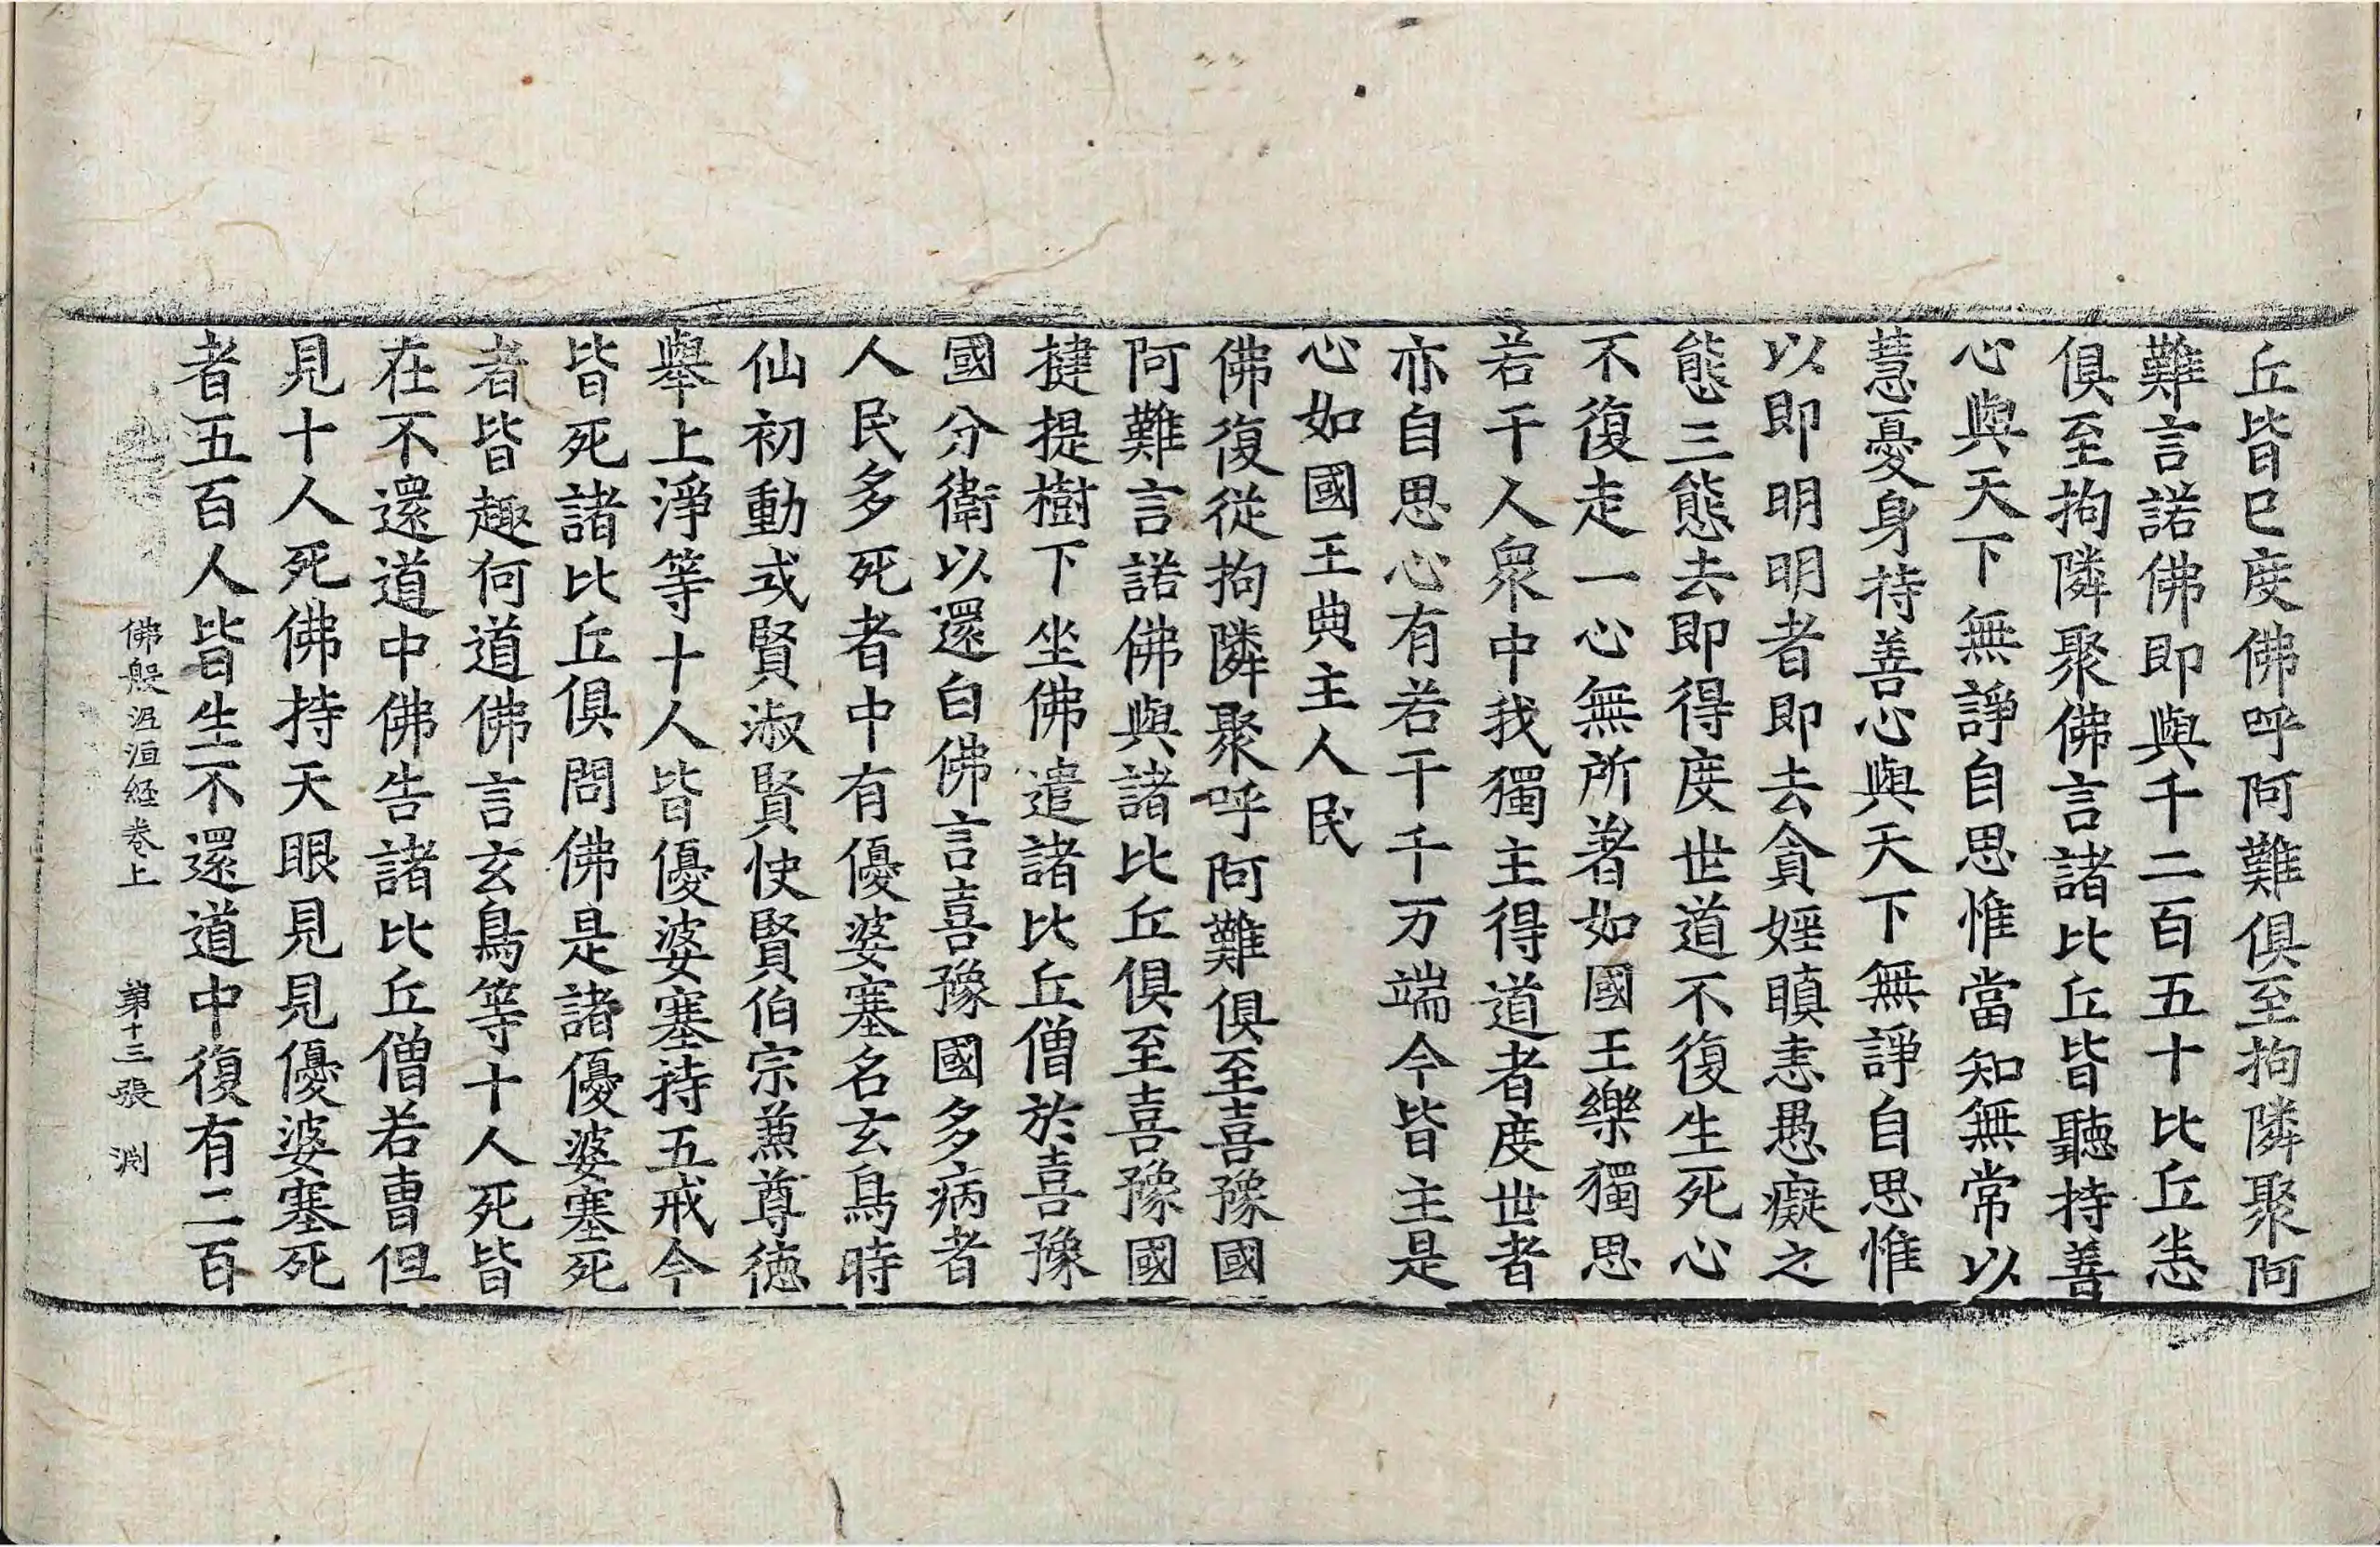 丘皆已度佛呼阿難俱至拘隣聚阿
難言諾佛即與千二百五十比丘恙
俱至拘隣聚佛言諸比丘皆聽持善
心與天下無諍自思惟當知無常以
慧憂身持善心與天下無諍自思惟
以即明明者即去貪婬瞋恚愚癡之
態三態去即得度世道不復生死心
不復走一心無所著如國王樂獨思
若干人衆中我獨主得道者度世者
亦自思心有若干千万端今皆主是
心如國王典主人民
佛復從拘隣聚呼阿難俱至喜豫國
阿難言諾佛與諸比丘俱至喜豫國
揵提樹下坐佛遣諸比丘僧於喜豫
國分衛以還白佛言喜豫國多病者
人民多死者中有優婆塞名玄鳥時
仙初動或賢淑賢快賢伯宗兼尊德
舉上淨等十人皆優婆塞持五戒今
皆死諸比丘俱問佛是諸優婆塞死
者皆趣何道佛言玄鳥等十人死皆
在不還道中佛告諸比丘僧若曹但
見十人死佛持天眼見見優婆塞死
者五百人皆生不還道中復有二百
佛般泥洹経卷上 第十三張 渕